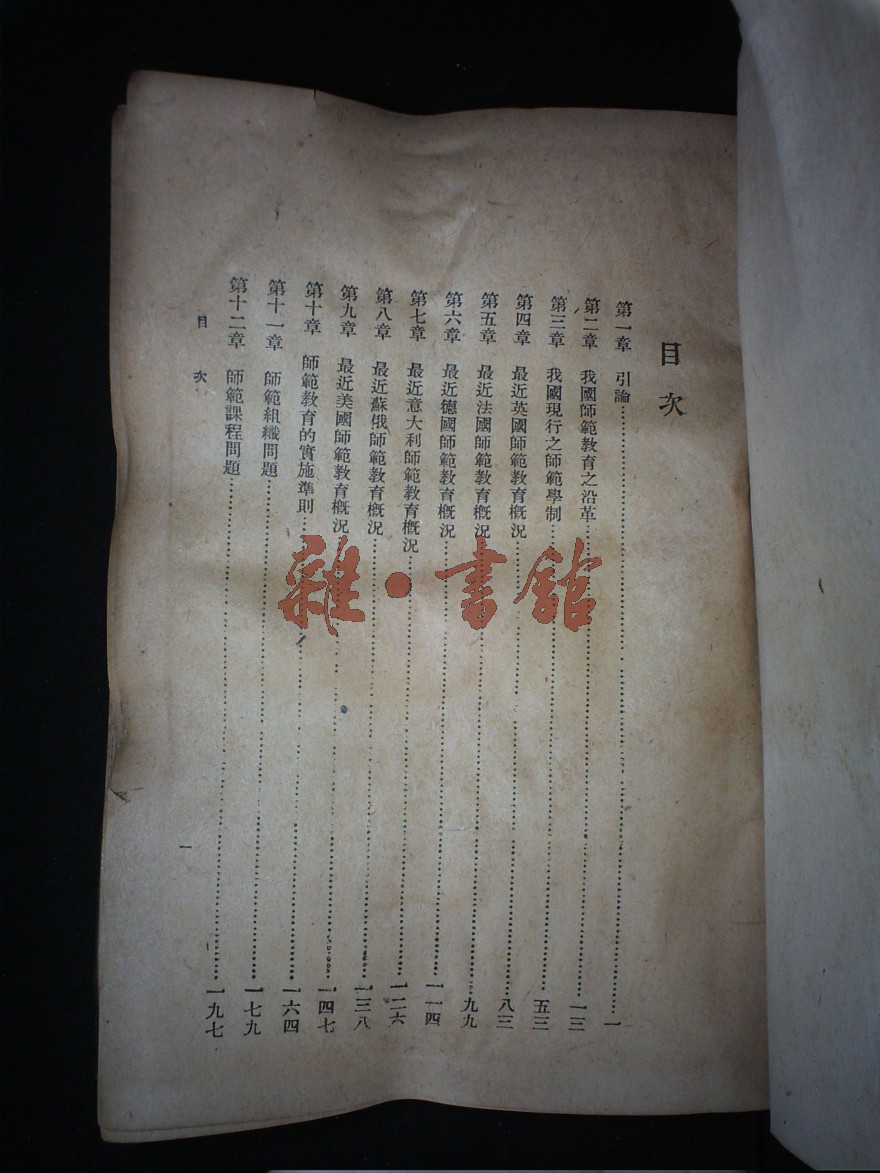 目次
第一章 引論……一
第二章 我國師範教育之沿革……一三
第三章 我國現行之師範學制……五三
第四章 最近英國師範教育概況……八三
第五章 最近法國師範教育概況……九九
第六章 最近德國師範教育概況……一一四
第七章 最近意大利師範教育概況……一二六
第八章 最近蘇俄師範教育概況……一三八
第九章 最近美國師範教育概況……一四七
第十章 師範教育的實施準則……一六四
第十一章 師範組織問題……一七九
第十二章 師範課程問題……一九七
目次
一
雜·書館